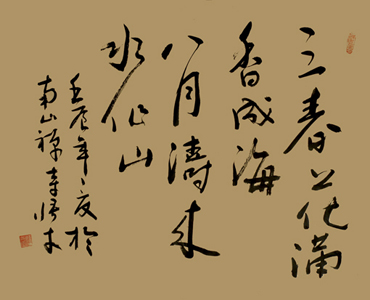 三春花滿
香成海
八月濤來
水作山
壬辰年夏於
南山禪寺